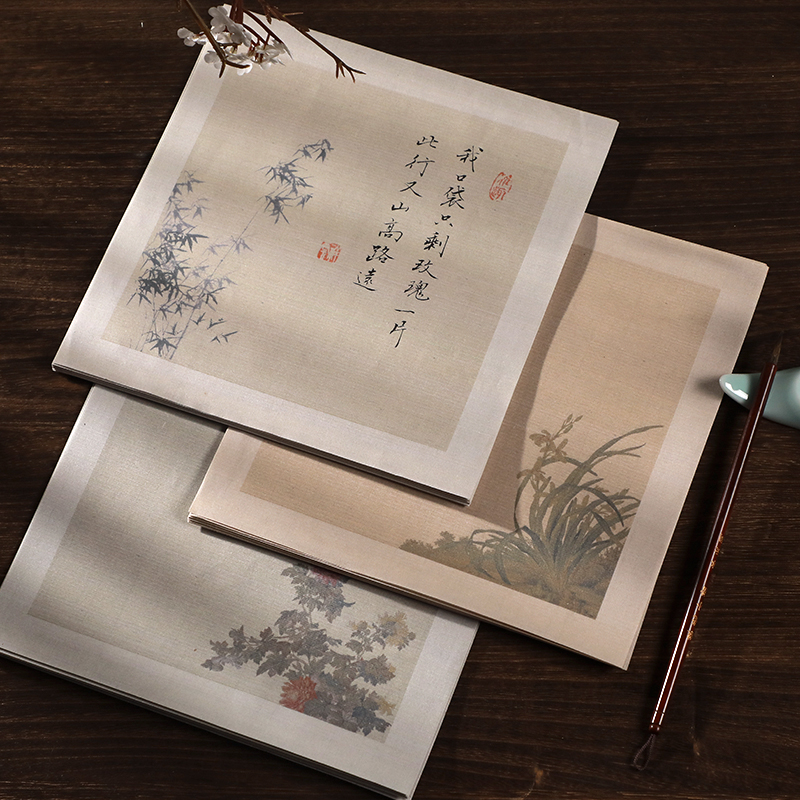 我口袋只剩玫瑰一片
此行又山高路遠